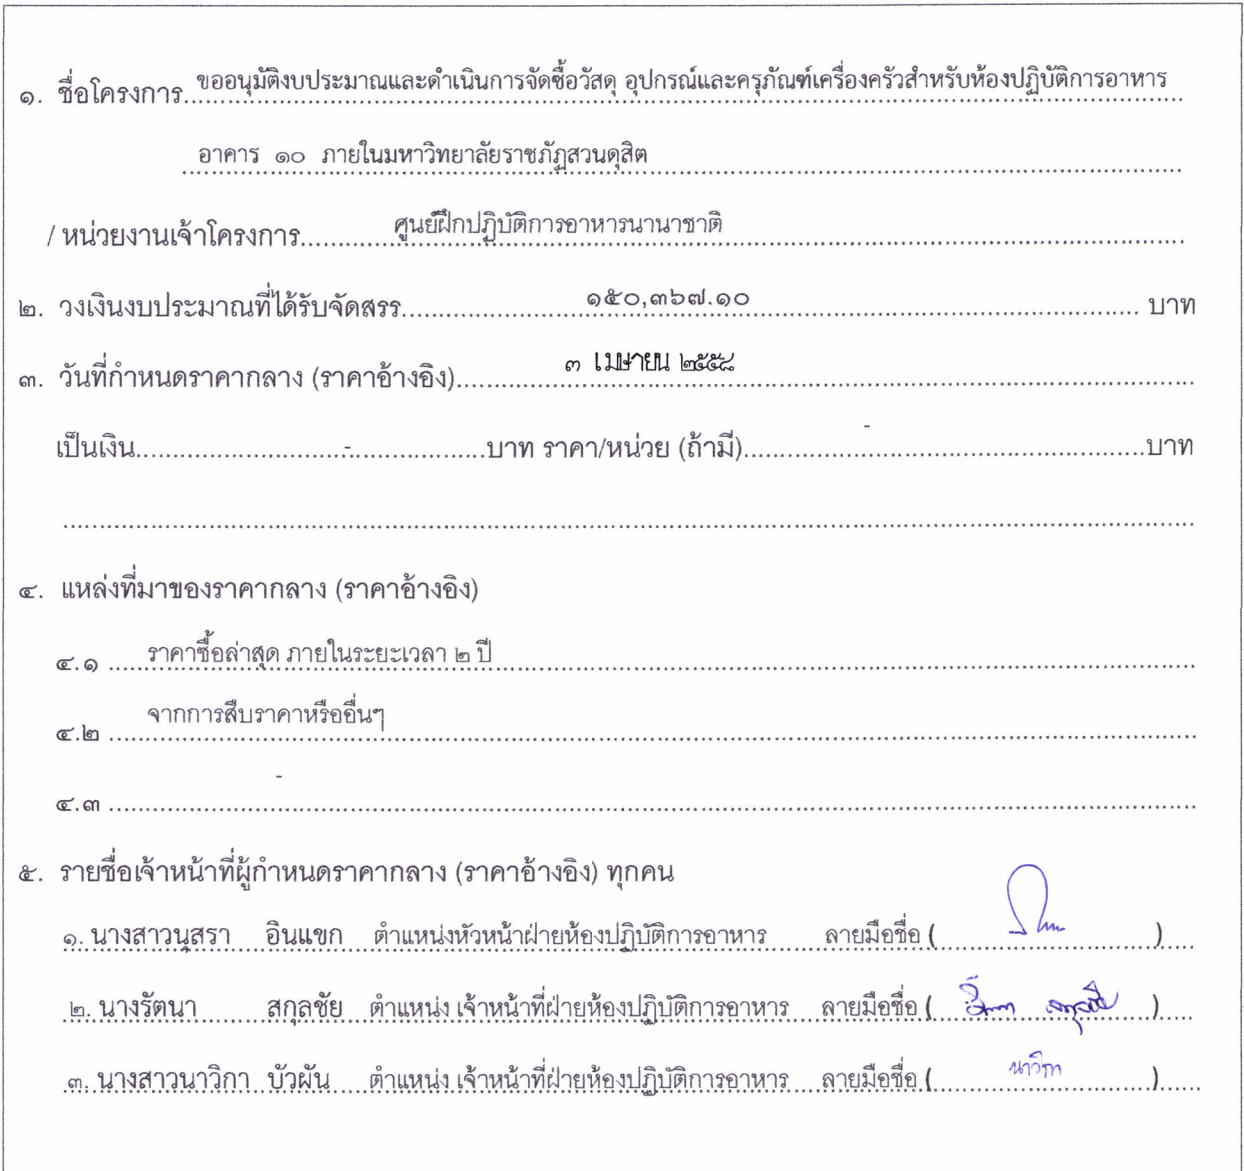 ๑. ชื่อโครงการ ขออนุมัติงบประมาณและดำเนินการจัดซื้อวัสดุ อุปกรณ์และครุภัณฑ์เครื่องครัวสำหรับห้องปฏิบัติการอาหาร
อาคาร ๑๐ ภายในมหาวิทยาลัยราชภัฏสวนดุสิต
/ หน่วยงานเจ้าโครงการ ศูนย์ฝึกปฏิบัติการอาหารนานาชาติ
๒. วงเงินงบประมาณที่ได้รับจัดสรร ๑๕๐,๓๖๗.๑๐ บาท
๓. วันที่กำหนดราคากลาง (ราคาอ้างอิง) ๓ เมษายน ๒๕๕๘
เป็นเงิน - บาท ราคา/หน่วย (ถ้ามี) - บาท
๔. แหล่งที่มาของราคากลาง (ราคาอ้างอิง)
๔.๑ ราคาซื้อล่าสุด ภายในระยะเวลา ๒ ปี
๔.๒ จากการสืบราคาหรืออื่นๆ
๔.๓ -
๕. รายชื่อเจ้าหน้าที่ผู้กำหนดราคากลาง (ราคาอ้างอิง) ทุกคน
๑. นางสาวนุสรา อินแขก ตำแหน่งหัวหน้าฝ่ายห้องปฏิบัติการอาหาร ลายมือชื่อ ( )
๒. นางรัตนา สกุลชัย ตำแหน่ง เจ้าหน้าที่ฝ่ายห้องปฏิบัติการอาหาร ลายมือชื่อ ( )
๓. นางสาวนาวิกา บัวผัน ตำแหน่ง เจ้าหน้าที่ฝ่ายห้องปฏิบัติการอาหาร ลายมือชื่อ ( นาวิกา )